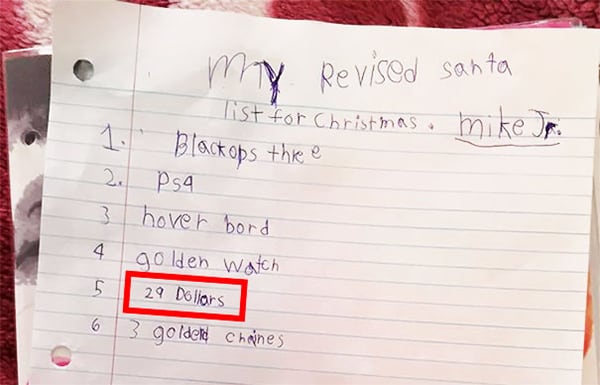 My Revised santa
list for Christmas. mike Jr.
1. Blackops three
2. PS4
3 hover bord
4 golden watch
5 29 Dollars
6 3 golden chaines